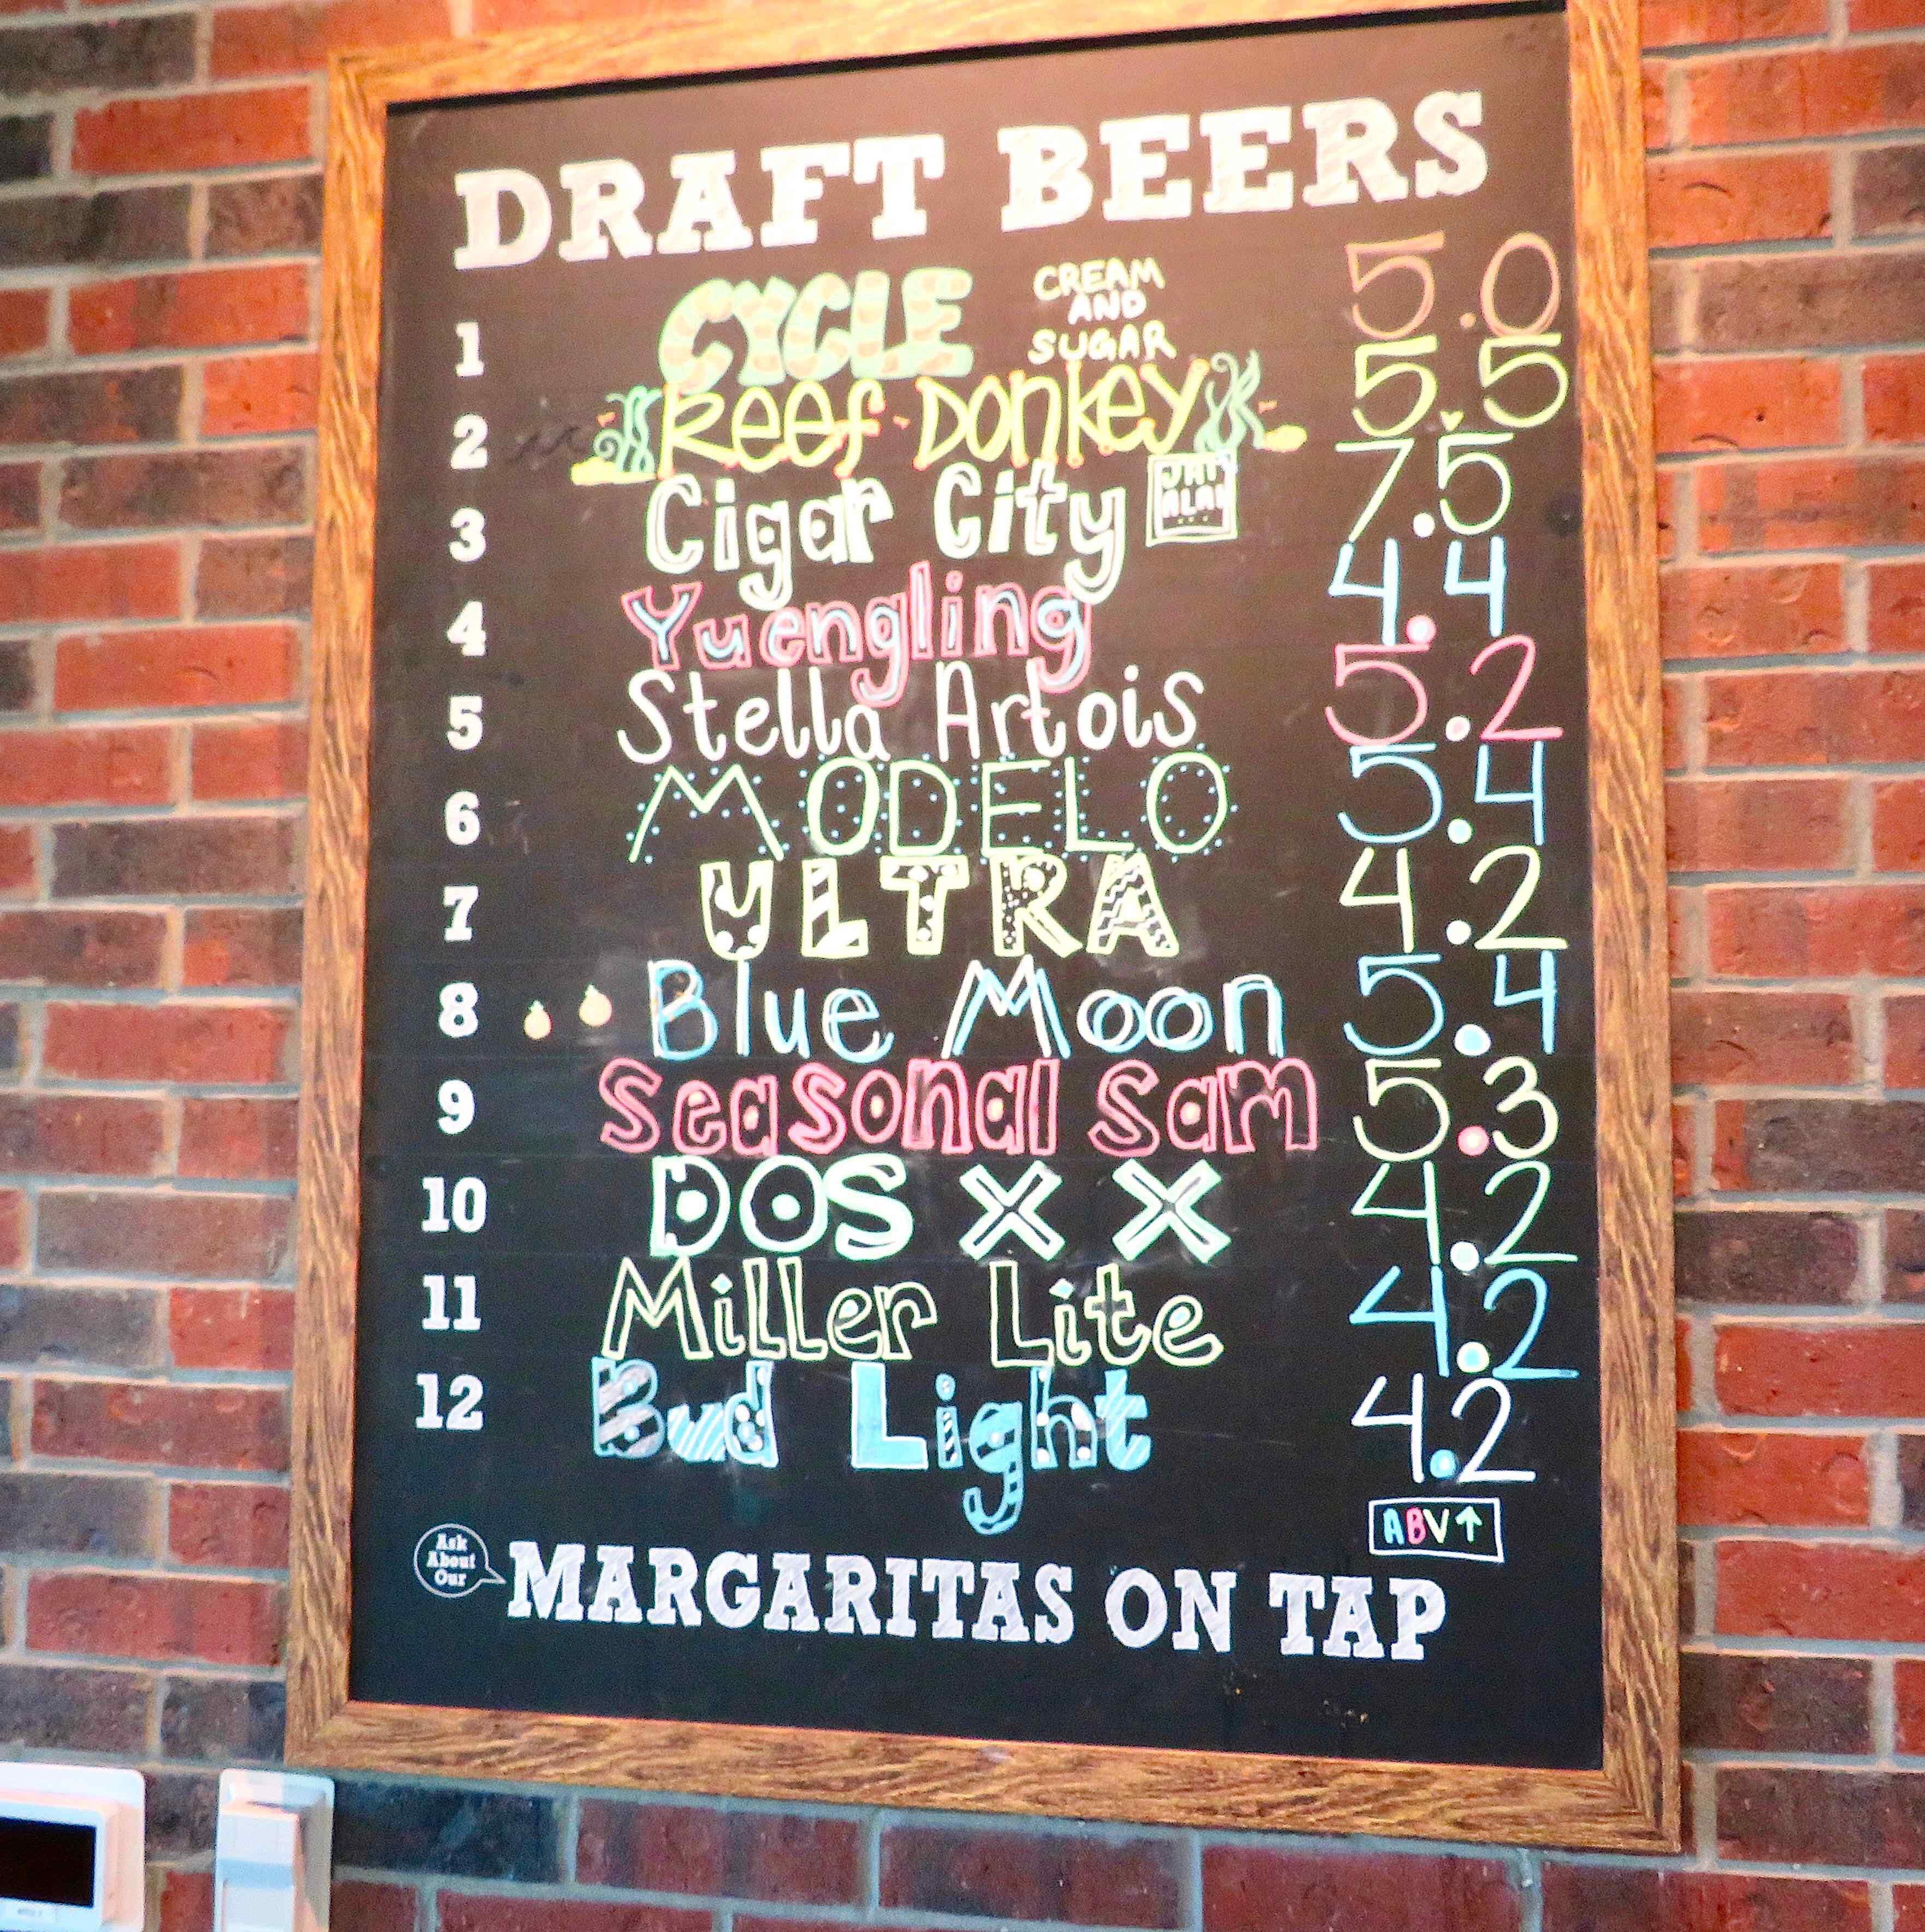 DRAFT BEERS
1 CYCLE CREAM AND SUGAR 5.0
2 Reef Donkey 5.5
3 Cigar City JAI ALAI 7.5
4 Yuengling 4.4
5 Stella Artois 5.2
6 MODELO 5.4
7 ULTRA 4.2
8 Blue Moon 5.4
9 Seasonal Sam 5.3
10 DOS X X 4.2
11 Miller Lite 4.2
12 Bud Light 4.2
ABV↑
Ask About Our MARGARITAS ON TAP